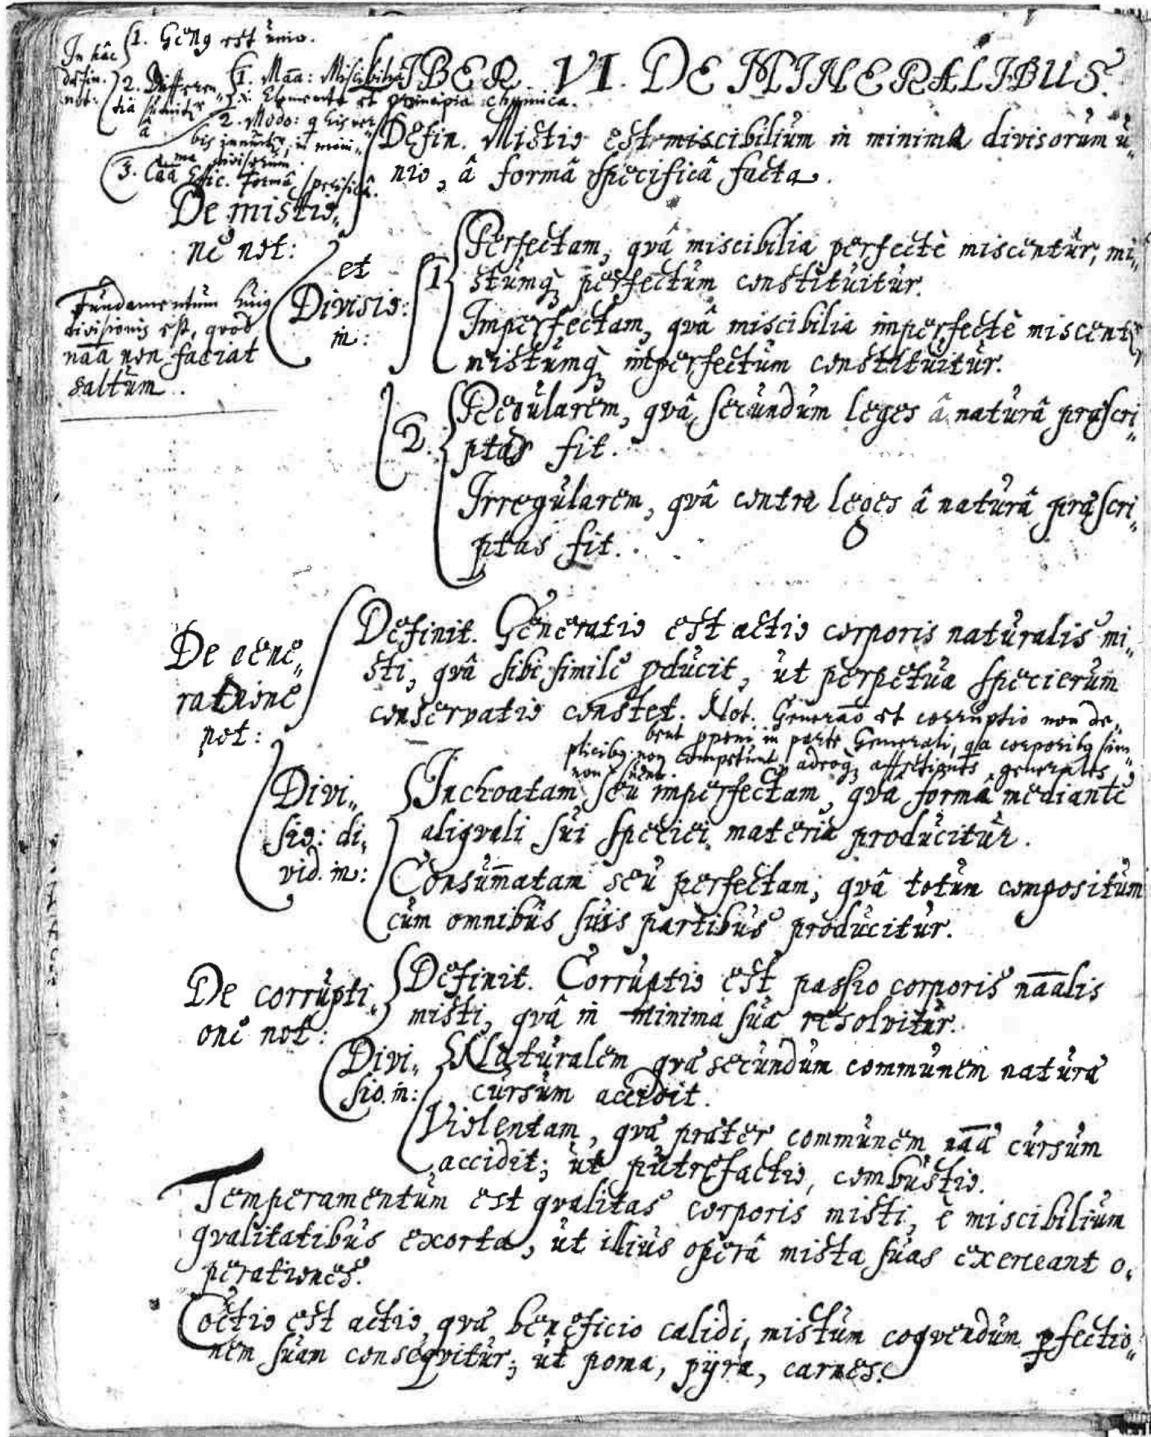 In hâc defin. not:
1. Geng est unio.
2. Differen-
tia sumitr
â
1. Maā: Miscibilia
i. Elementa et principia chymica.
2. Modo: q his ver-
bis innuitr, in mini-
ma divisorum.
3. Caā Effic. formâ specificâ.
LIBER. VI. DE MINERALIBUS.
De mistio-
ne not:
Defin. Mistio est miscibilium in minima divisorum u-
nio, â formâ specificâ facta.
et
Divisio:
in:
1
Perfectam, qvâ miscibilia perfectè miscentur, mi-
stumq perfectum constituitur.
Imperfectam, qvâ miscibilia imperfectè miscentr,
mistumq imperfectum constituitur.
Fundamentum hujg
divisionis est, qvod
naā non faciat
saltum.
2.
Regularem, qvâ secundum leges â naturâ præscri-
ptas fit.
Irregularem, qvâ contra leges â naturâ præscri-
ptas fit.
De gene-
ratione
not:
Definit. Generatio est actio corporis naturalis mi-
sti, qvâ sibi simile pducit, ut perpetua specierum
conservatio constet. Not. Generaō et corruptio non de-
bent pponi in parte Generali, qa corporibg sim-
plicibg non competunt, adeoq affectiones generales
non sunt.
Divi-
sio: di-
vid. in:
Inchoatam seu imperfectam, qvâ forma mediante
aliqvali sui speciei materiâ producitur.
Consum̄atam seu perfectam, qvâ totum compositum
cum omnibus suis partibus producitur.
De corrupti-
one not:
Definit. Corruptio est passio corporis naālis
misti, qvâ in minima sua resolvitur.
Divi-
sio. in:
Naturalem qvæ secundum communem naturæ
cursum accidit.
Violentam, qvæ præter communem naæ cursum
accidit; ut putrefactio, combustio.
Temperamentum est qvalitas corporis misti, è miscibilium
qvalitatibus exorta, ut illius operâ mista suas exerceant o-
perationes.
Coctio est actio, qvâ beneficio calidi, mistum coqvendum pfectio-
nem suam conseqvitur; ut poma, pÿra, carnes.